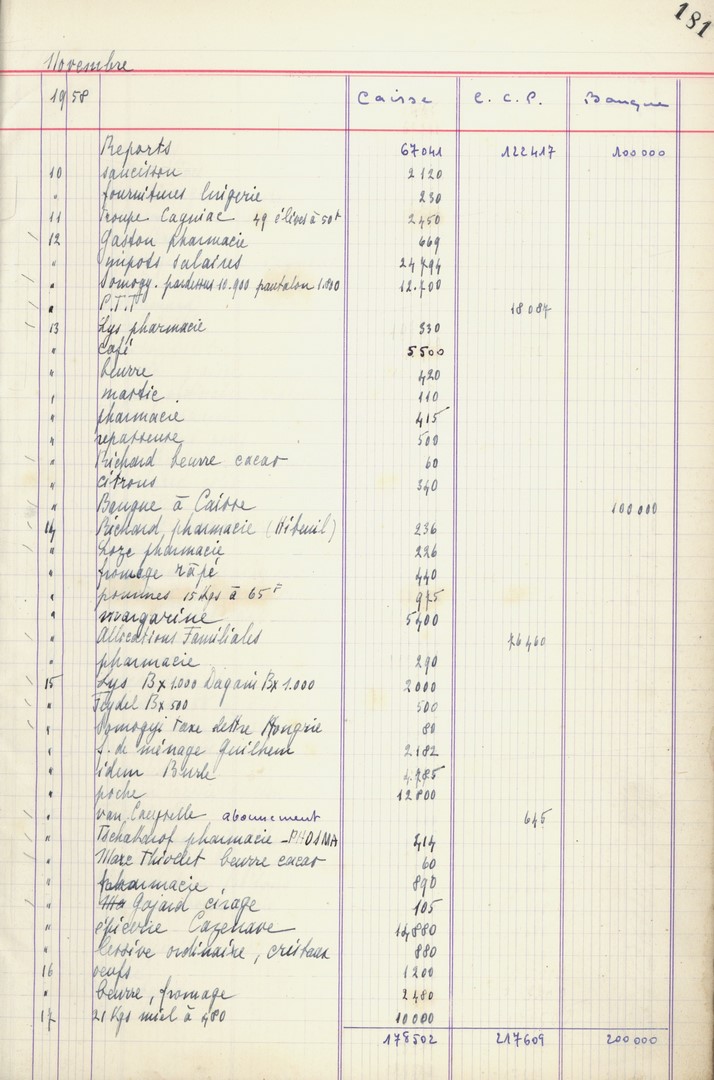 181
Novembre
1958 Caisse C.C.P. Banque
Reports 67041 122417 100000
10 saucisson 2120
" fournitures lingerie 230
11 Troupe Cagniac 49 élèves à 50f 2450
12 Gaston pharmacie 669
" impots salaires 24794
" Somogy. pardessus 10.900 pantalon 1.800 12.700
" P.T.T 18087
13 Lys pharmacie 330
" café 5500
" beurre 420
" mastic. 110
" pharmacie 415
" repasseuse 500
" Richard beurre cacao 60
" citrons 340
" Banque à Caisse 100000
14 Richard, pharmacie 236
" Loze pharmacie 226
" fromage râpé 440
" pommes 15 Kgs à 65F 975
" margarine 5400
" Allocations Familiales 76460
" pharmacie 290
15 Lys Bx 1.000 Dagani Bx 1.000 2000
" Feydel Bx 500 500
" Somogyi taxe lettre Hongrie 80
" f. de ménage Guilhem 2182
" idem Burle 4.785
" poche 12800
" van Caeyselle abonnement 645
" pharmacie - PHOSMA 414
" Marc Thivolet beurre cacao 60
" pharmacie 890
" Gojard cirage 105
" épicerie Cazenave 14880
" lessive ordinaire, cristaux 880
16 oeufs 1200
" beurre, fromage 2480
17 21 Kgs miel à 480 10080
178502 217609 200000